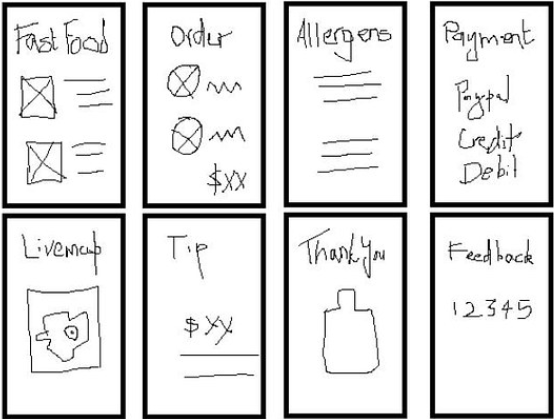 Fast Food
Order
$XX
Allergens
Payment
Paypal
Credit
Debit
Livemap
Tip
$ XX
Thank You
Feedback
1 2 3 4 5